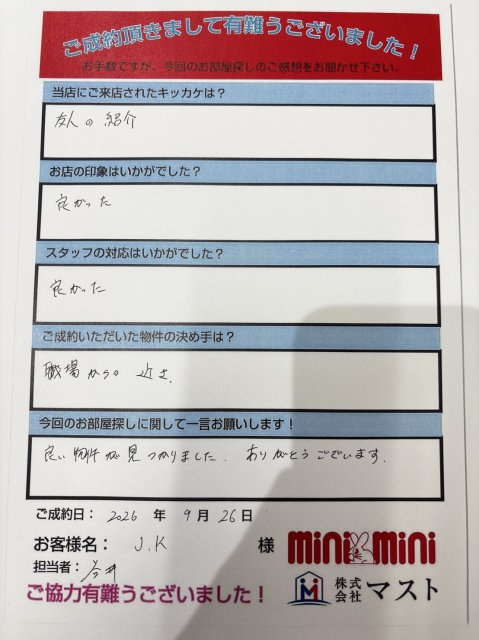 ご成約頂きまして有難うございました！
お手数ですが、今回のお部屋探しのご感想をお聞かせ下さい。
当店にご来店されたキッカケは？
友人の紹介
お店の印象はいかがでした？
良かった
スタッフの対応はいかがでした？
良かった
ご成約いただいた物件の決め手は？
職場からの近さ、
今回のお部屋探しに関して一言お願いします！
良い物件が見つかりました. ありがとうございます.
ご成約日： 2026 年 9月 26日
お客様名： J.K 様
担当者：
mini mini
ご協力有難うございました！
株式会社 マスト